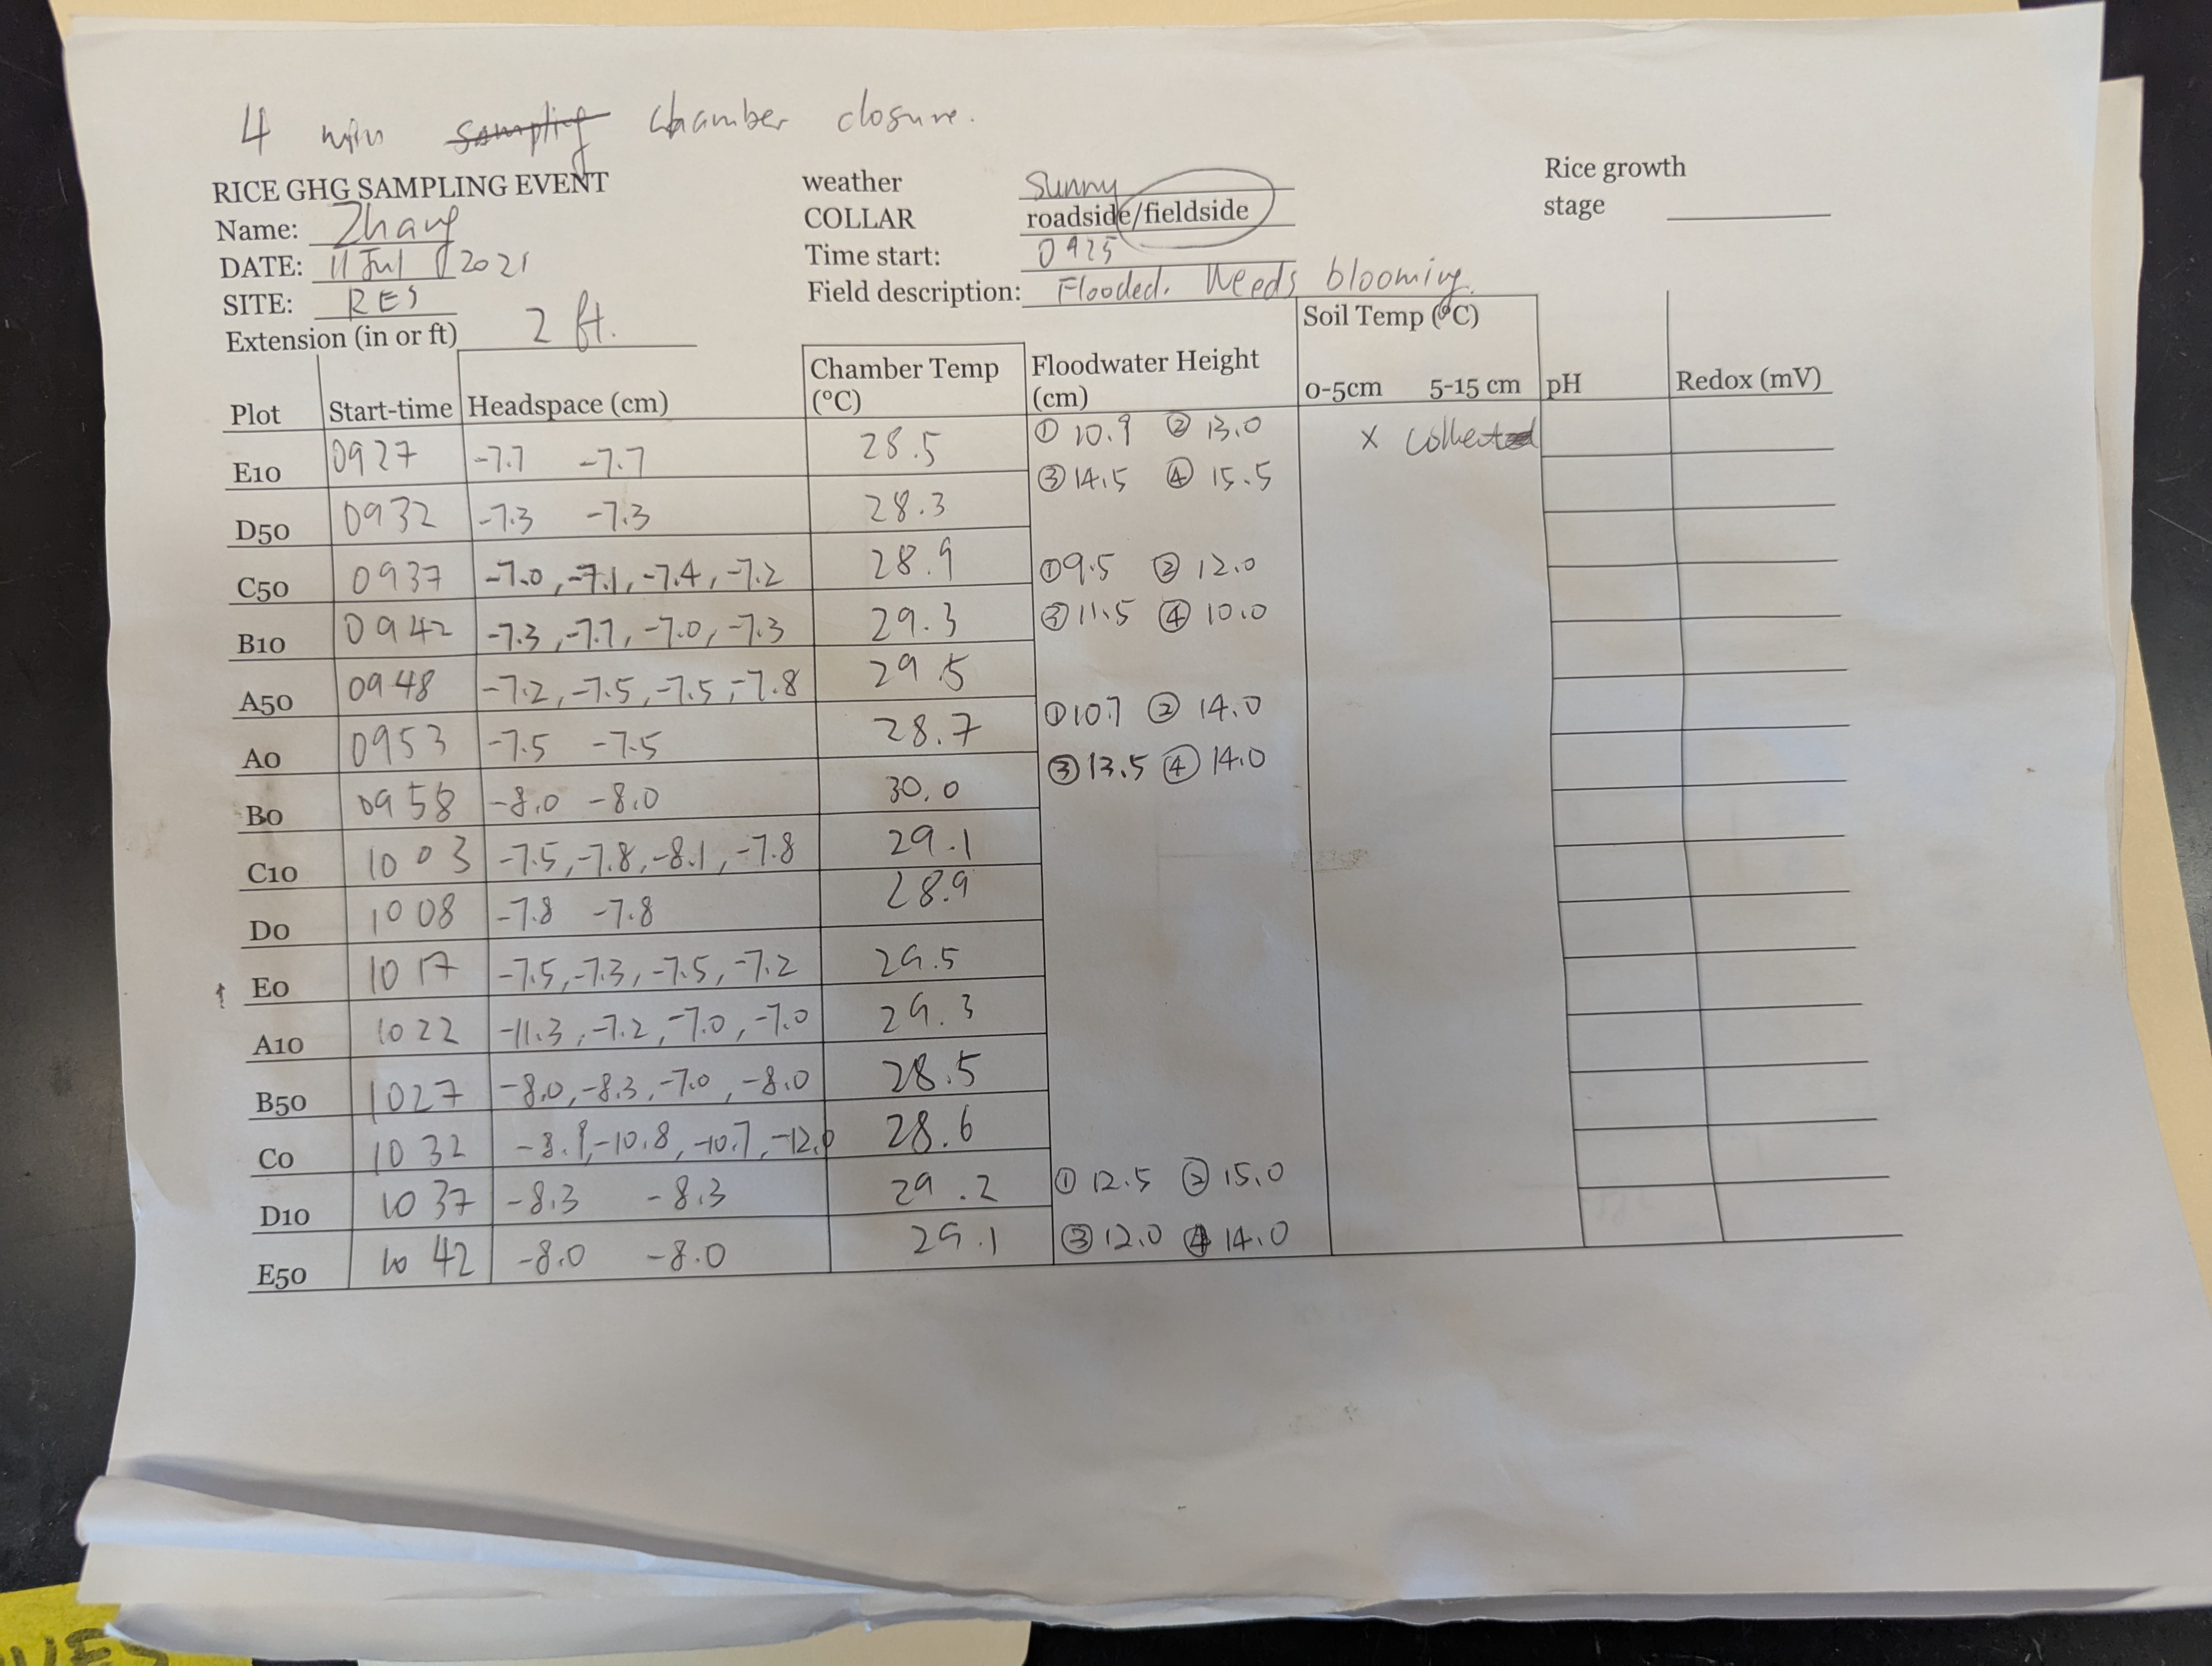 4 mins sampling chamber closure.
RICE GHG SAMPLING EVENT
Name: Zhang
DATE: 11 Jul 2021
SITE: RES
Extension (in or ft) 2 ft.
weather Sunny
COLLAR roadside/fieldside
Time start: 0925
Field description: Flooded. Weeds blooming.
Rice growth
stage
Soil Temp (°C)
Plot Start-time Headspace (cm) Chamber Temp (°C) Floodwater Height (cm) 0-5cm 5-15 cm pH Redox (mV)
E10 0927 -7.7 -7.7 28.5 ① 10.9 ② 13.0 x collected
③ 14.5 ④ 15.5
D50 0932 -7.3 -7.3 28.3
C50 0937 -7.0, -7.1, -7.4, -7.2 28.9 ① 9.5 ② 12.0
B10 0942 -7.3, -7.7, -7.0, -7.3 29.3 ③ 11.5 ④ 10.0
A50 0948 -7.2, -7.5, -7.5, -7.8 29.5
A0 0953 -7.5 -7.5 28.7 ① 10.7 ② 14.0
③ 13.5 ④ 14.0
B0 0958 -8.0 -8.0 30.0
C10 1003 -7.5, -7.8, -8.1, -7.8 29.1
D0 1008 -7.8 -7.8 28.9
E0 1017 -7.5, -7.3, -7.5, -7.2 29.5
A10 1022 -11.3, -7.2, -7.0, -7.0 29.3
B50 1027 -8.0, -8.3, -7.0, -8.0 28.5
C0 1032 -10.8, -10.7, -12.0 28.6
D10 1037 -8.3 -8.3 29.2 ① 12.5 ② 15.0
E50 1042 -8.0 -8.0 29.1 ③ 12.0 ④ 14.0